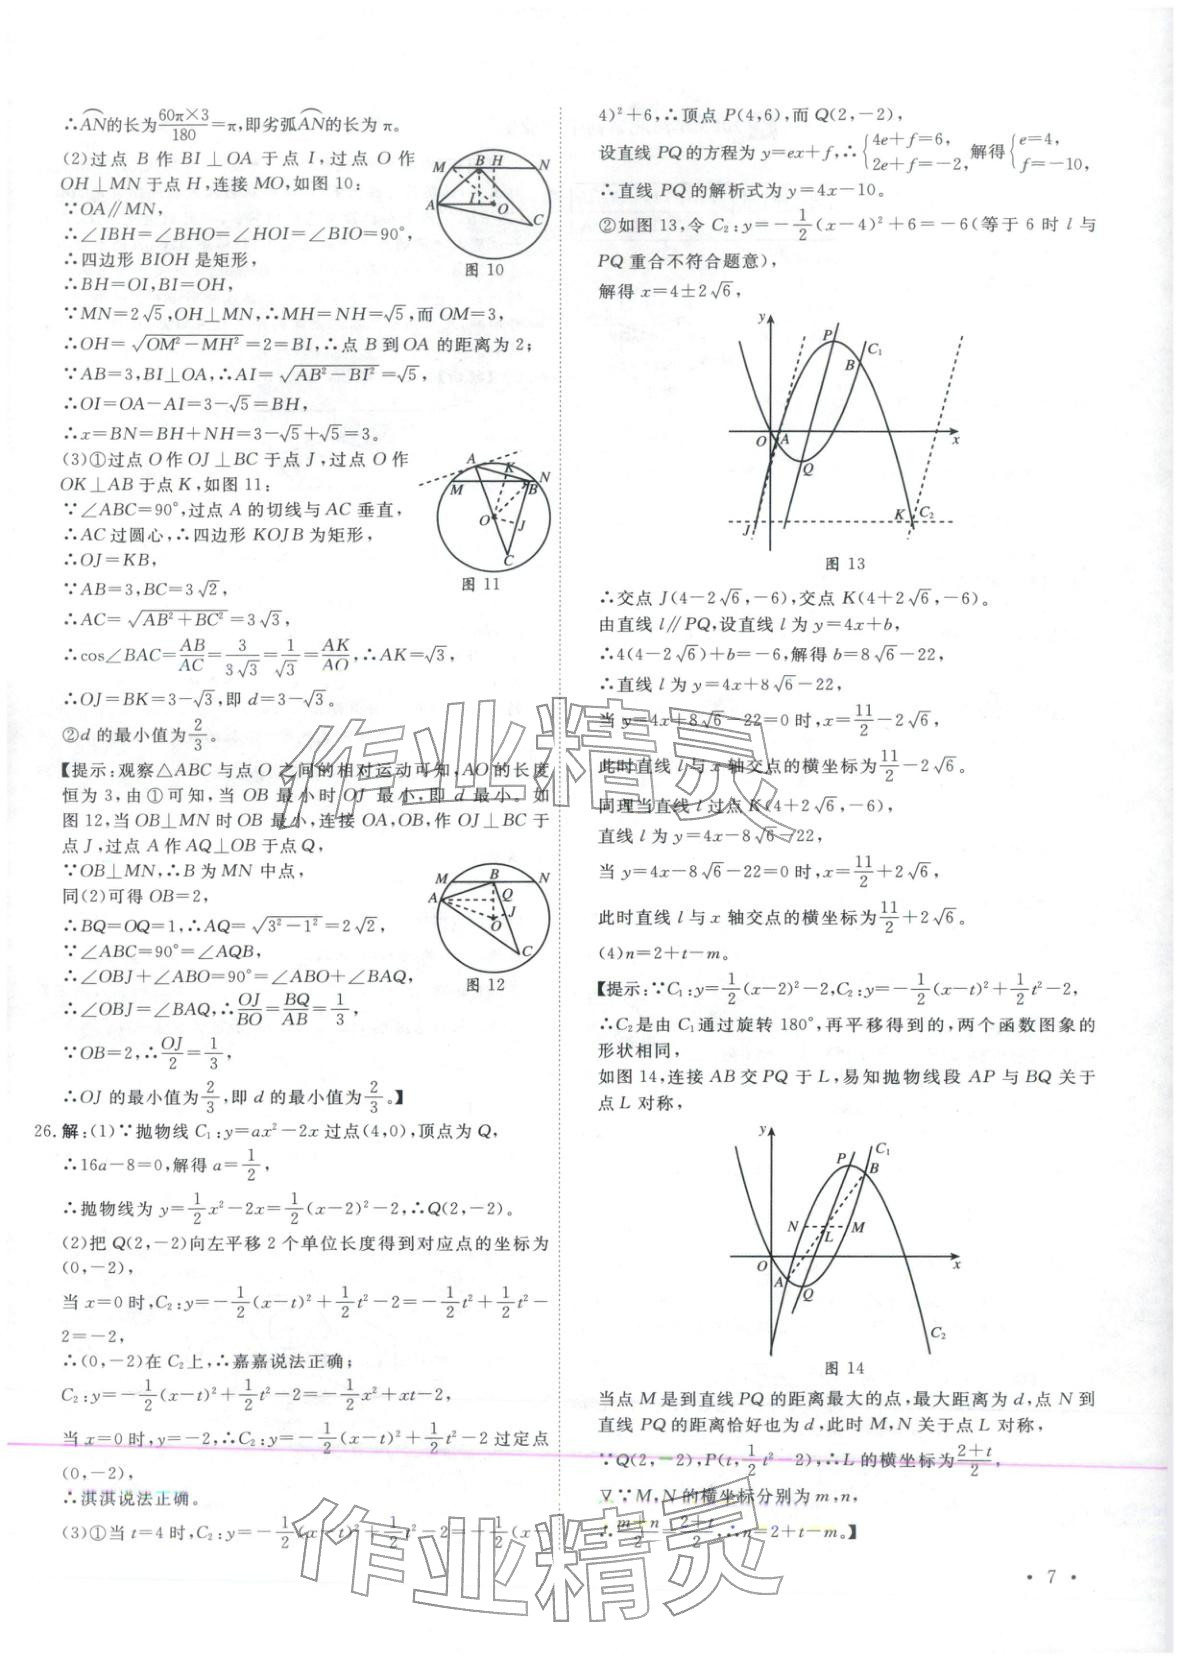 ∴AN的长为60π×3/180=π,即劣弧AN的长为π。
(2)过点 B 作 BI⊥OA 于点 I,过点 O 作
OH⊥MN于点H,连接MO,如图10:
∵OA∥MN,
∴∠IBH=∠BHO=∠HOI=∠BIO=90°,
∴四边形 BIOH 是矩形,
∴BH=OI,BI=OH,
∵MN=2√5,OH⊥MN,∴MH=NH=√5,而OM=3,
∴OH=√(OM²-MH²)=2=BI,∴点B到OA的距离为2;
∵AB=3,BI⊥OA,∴AI=√(AB²-BI²)=√5,
∴OI=OA-AI=3-√5=BH,
∴x=BN=BH+NH=3-√5+√5=3。
M B H N
A I O C
图 10
(3)①过点O作OJ⊥BC于点J,过点O作
OK⊥AB于点K,如图11:
∵∠ABC=90°,过点A的切线与AC垂直,
∴AC过圆心,∴四边形KOJB为矩形,
∴OJ=KB,
∵AB=3,BC=3√2,
∴AC=√(AB²+BC²)=3√3,
∴cos∠BAC=AB/AC=3/(3√3)=1/√3=AK/AO,∴AK=√3,
∴OJ=BK=3-√3,即d=3-√3。
A K N
M B
O J
C
图 11
②d的最小值为2/3。
【提示:观察△ABC与点O之间的相对运动可知,AO的长度
恒为3,由①可知,当OB最小时OJ最小,即d最小。如
图12,当OB⊥MN时OB最小,连接OA,OB,作OJ⊥BC于
点J,过点A作AQ⊥OB于点Q,
∵OB⊥MN,∴B为MN中点,
同(2)可得OB=2,
∴BQ=OQ=1,∴AQ=√(3²-1²)=2√2,
∵∠ABC=90°=∠AQB,
∴∠OBJ+∠ABO=90°=∠ABO+∠BAQ,
∴∠OBJ=∠BAQ,∴OJ/BO=BQ/AB=1/3,
∵OB=2,∴OJ/2=1/3,
∴OJ的最小值为2/3,即d的最小值为2/3。】
M B N
A Q
J
O
C
图 12
26.解:(1)∵抛物线C₁:y=ax²-2x过点(4,0),顶点为Q,
∴16a-8=0,解得a=1/2,
∴抛物线为y=1/2x²-2x=1/2(x-2)²-2,∴Q(2,-2)。
(2)把Q(2,-2)向左平移2个单位长度得到对应点的坐标为
(0,-2),
当x=0时,C₂:y=-1/2(x-t)²+1/2t²-2=-1/2t²+1/2t²-
2=-2,
∴(0,-2)在C₂上,∴嘉嘉说法正确;
C₂:y=-1/2(x-t)²+1/2t²-2=-1/2x²+xt-2,
当x=0时,y=-2,∴C₂:y=-1/2(x-t)²+1/2t²-2过定点
(0,-2),
∴淇淇说法正确。
(3)①当t=4时,C₂:y=-1/2(x-t)²+1/2t²-2=-1/2(x-
4)²+6,∴顶点P(4,6),而Q(2,-2),
设直线PQ的方程为y=ex+f,∴{4e+f=6, 2e+f=-2, 解得{e=4, f=-10,
∴直线PQ的解析式为y=4x-10。
②如图13,令C₂:y=-1/2(x-4)²+6=-6(等于6时l与
PQ重合不符合题意),
解得x=4±2√6,
y
P C₁
B
O A x
Q
J K C₂
图 13
∴交点J(4-2√6,-6),交点K(4+2√6,-6)。
由直线l∥PQ,设直线l为y=4x+b,
∴4(4-2√6)+b=-6,解得b=8√6-22,
∴直线l为y=4x+8√6-22,
当y=4x+8√6-22=0时,x=11/2-2√6,
此时直线l与x轴交点的横坐标为11/2-2√6。
同理当直线l过点K(4+2√6,-6),
直线l为y=4x-8√6-22,
当y=4x-8√6-22=0时,x=11/2+2√6,
此时直线l与x轴交点的横坐标为11/2+2√6。
(4)n=2+t-m。
【提示:∵C₁:y=1/2(x-2)²-2,C₂:y=-1/2(x-t)²+1/2t²-2,
∴C₂是由C₁通过旋转180°,再平移得到的,两个函数图象的
形状相同,
如图14,连接AB交PQ于L,易知抛物线段AP与BQ关于
点L对称,
y
P C₁
B
N M
L
O x
A Q
C₂
图 14
当点M是到直线PQ的距离最大的点,最大距离为d,点N到
直线PQ的距离恰好也为d,此时M,N关于点L对称,
∵Q(2,-2),P(t,1/2t²-2),∴L的横坐标为(2+t)/2,
∇∵M,N的横坐标分别为m,n,
∴(m+n)/2=(2+t)/2,∴n=2+t-m。】
作业精灵
作业精灵
• 7 •